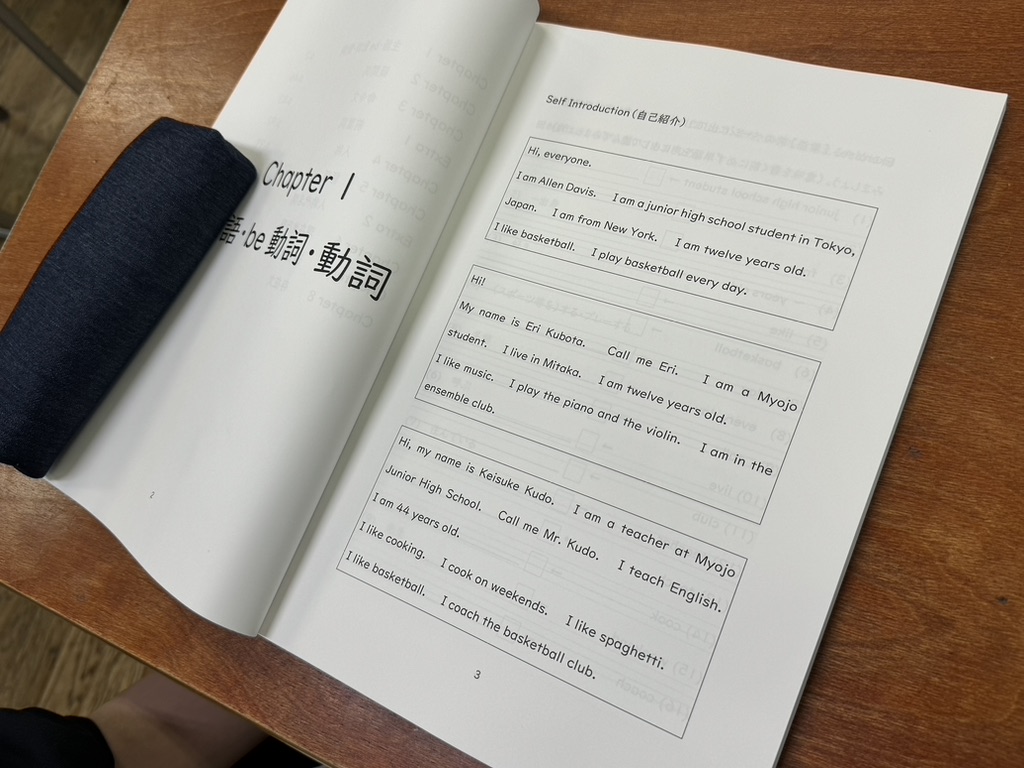 Chapter 1
語・be 動詞・動詞
2
Self Introduction(自己紹介)
Hi, everyone.
I am Allen Davis. I am a junior high school student in Tokyo,
Japan. I am from New York. I am twelve years old.
I like basketball. I play basketball every day.
Hi!
My name is Eri Kubota. Call me Eri. I am a Myojo
student. I live in Mitaka. I am twelve years old.
I like music. I play the piano and the violin. I am in the
ensemble club.
Hi, my name is Keisuke Kudo. I am a teacher at Myojo
Junior High School. Call me Mr. Kudo. I teach English.
I am 44 years old.
I like cooking. I cook on weekends. I like spaghetti.
I like basketball. I coach the basketball club.
3